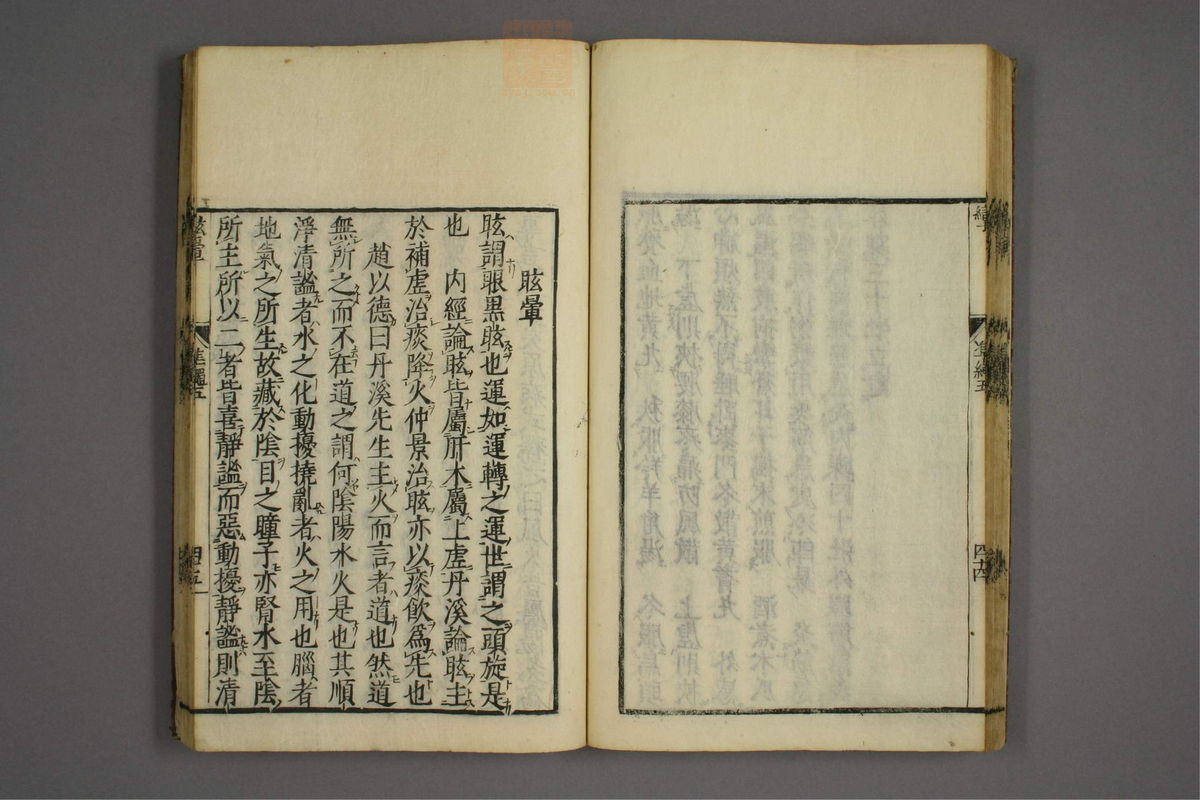 眩暈
眩謂眼黒眩也運如運轉之運世謂之頭旋是
也　内經論眩皆屬肝木屬上虚丹溪論眩主
於補虚治痰降火仲景治眩亦以痰飲爲先也
趙以德曰丹溪先生主火而言者道也然道
無所之而不在道之謂何陰陽水火是也其順
淨清謐者水之化動擾撓亂者火之用也腦者
地氣之所生故藏於陰目之瞳子亦腎水至陰
所主所以二者皆喜靜謐而惡動擾靜謐則清
眩暈
準繩五
四十五
準繩五
四十四